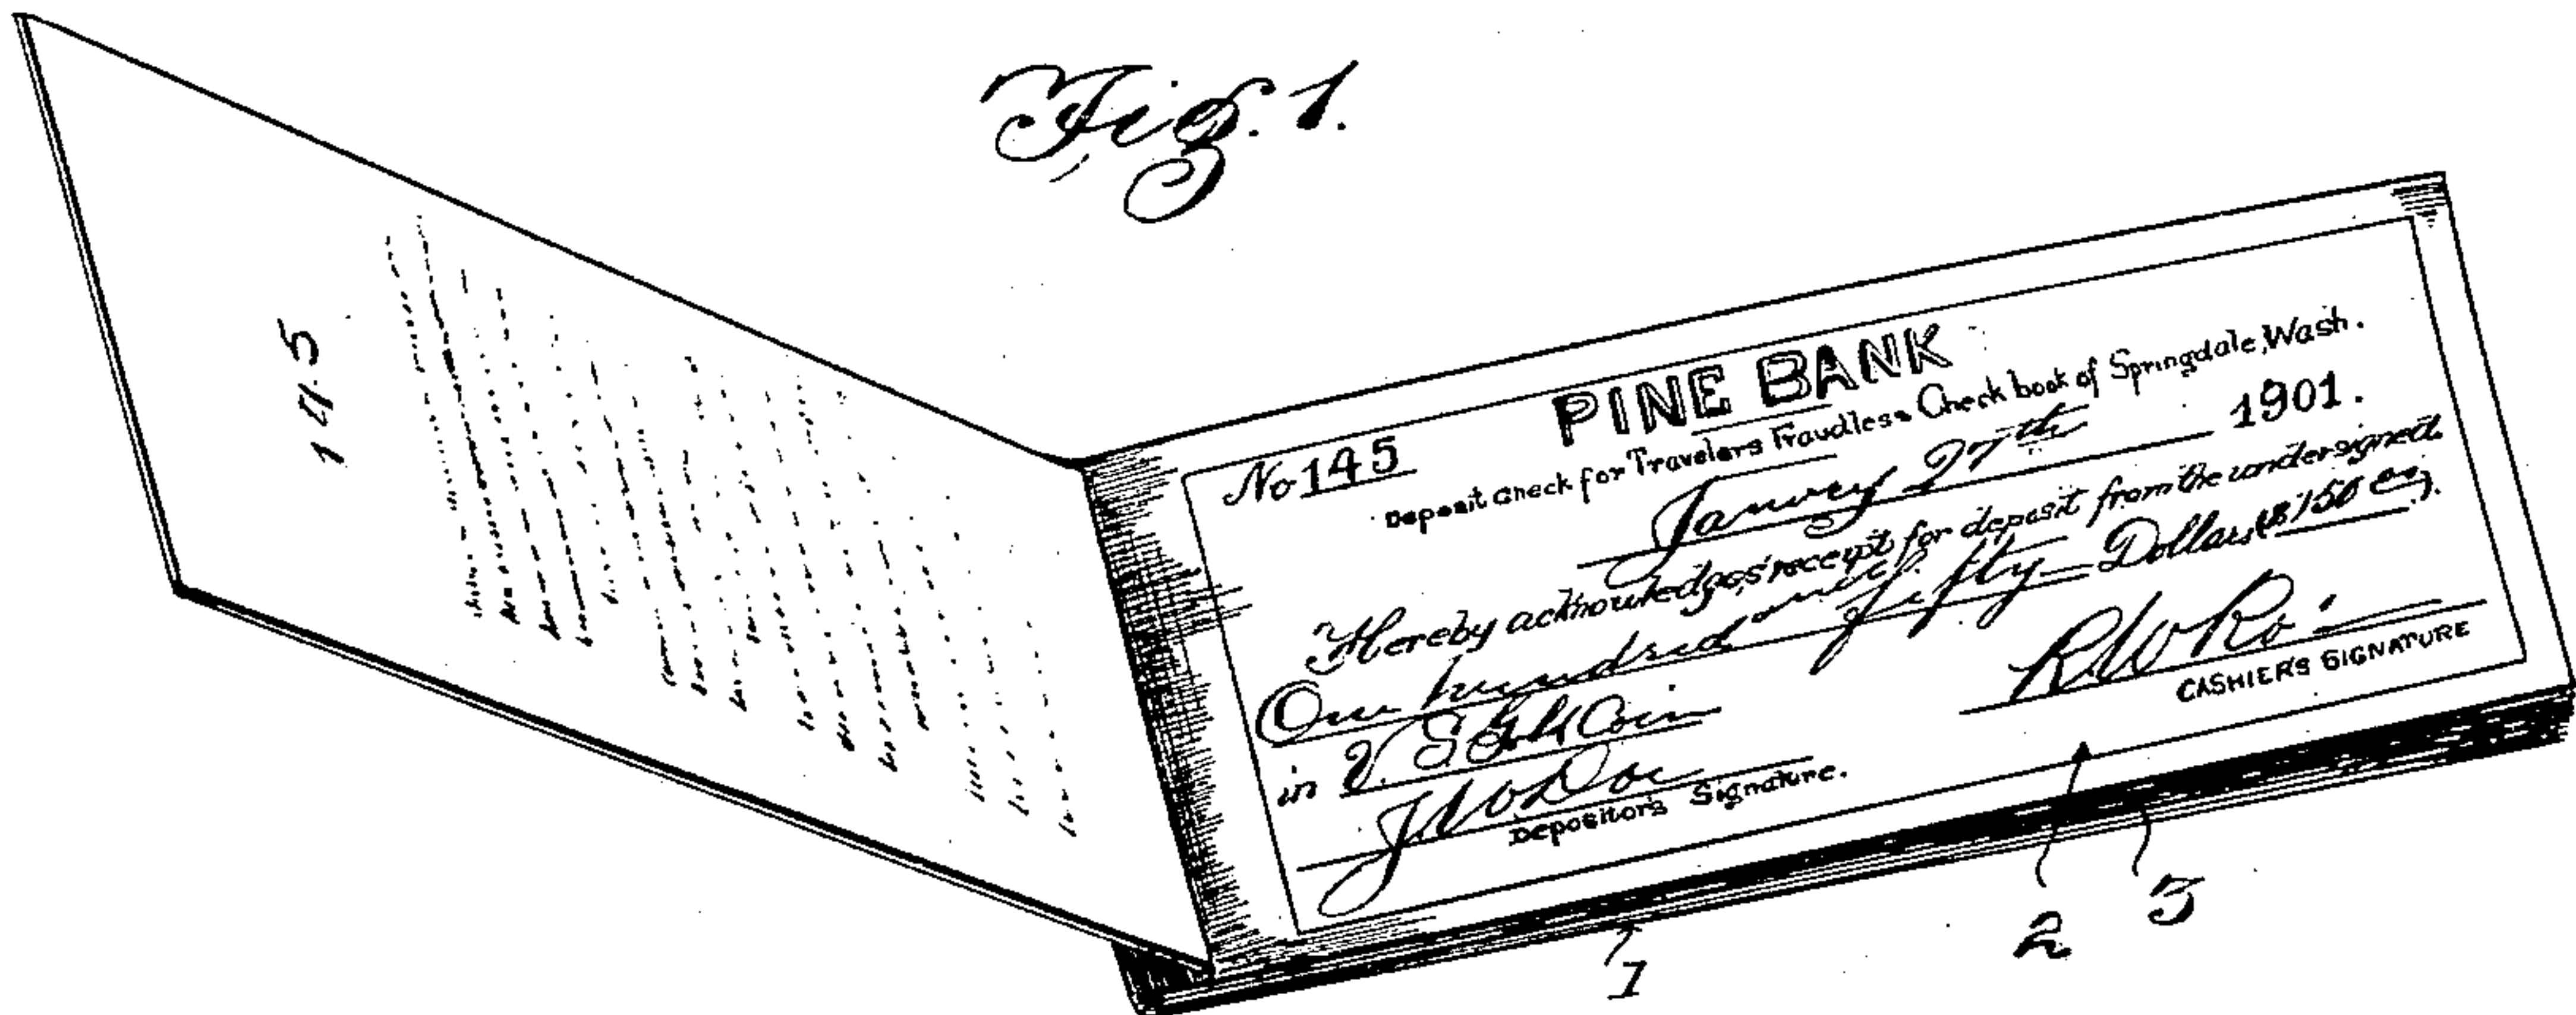 Fig. 1.
145
No 145
PINE BANK
Deposit Check for Travelers Fraudless Check book of Springdale, Wash.
Janury 27th 1901.
Hereby acknowledges receipt for deposit from the undersigned
One hundred and fifty Dollars ($150 00).
in U. S. Gold Coin
R W Ro
CASHIER'S SIGNATURE
J W Doe
Depositor's Signature.
1
2
3